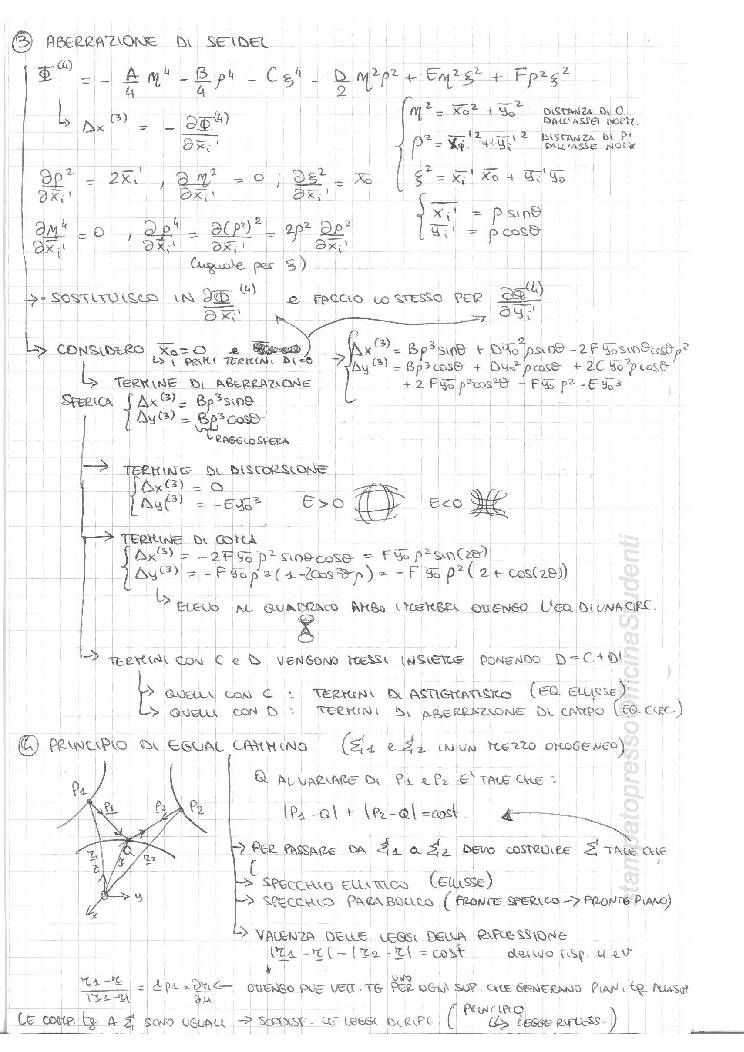 ③ ABERRAZIONE DI SEIDEL
Φ⁽⁴⁾ = - A/4 η⁴ - B/4 ρ⁴ - Cξ⁴ - D/2 η²ρ² + Eη²ξ² + Fρ²ξ²
↳ Δx⁽³⁾ = - ∂Φ⁽⁴⁾/∂x̄i'
η² = x̄0² + ȳ0² DISTANZA DI O DALL'ASSE NORM.
ρ² = x̄i'² + ȳi'² DISTANZA DI P1 DALL'ASSE NORM
ξ² = x̄i' x̄0 + ȳi' ȳ0
∂ρ²/∂x̄i' = 2x̄i' , ∂η²/∂x̄i' = 0 ; ∂ξ²/∂x̄i' = x̄0
x̄i' = ρ sinθ
ȳi' = ρ cosθ
∂η⁴/∂x̄i' = 0 , ∂ρ⁴/∂x̄i' = ∂(ρ²)²/∂x̄i' = 2ρ² ∂ρ²/∂x̄i'
(uguale per ξ)
→ SOSTITUISCO IN ∂Φ⁽⁴⁾/∂x̄i' e FACCIO LO STESSO PER ∂Φ⁽⁴⁾/∂ȳi'
→ CONSIDERO x̄0 = 0 e
↳ I PRIMI TERMINI DI = 0
Δx⁽³⁾ = Bρ³sinθ + Dȳ0²ρsinθ - 2Fȳ0 sinθcosθρ²
Δy⁽³⁾ = Bρ³cosθ + Dy0²ρcosθ + 2Cȳ0²ρcosθ
+ 2Fȳ0ρ²cos²θ - Fȳ0ρ² - Eȳ0³
↳ TERMINE DI ABERRAZIONE
SFERICA { Δx⁽³⁾ = Bρ³sinθ
Δy⁽³⁾ = Bρ³cosθ
↳ RAGGIO SFERA
→ TERMINE DI DISTORSIONE
Δx⁽³⁾ = 0
Δy⁽³⁾ = -Eȳ0³ E>0 E<0
→ TERMINE DI COMA
Δx⁽³⁾ = -2Fȳ0ρ²sinθcosθ = Fȳ0ρ²sin(2θ)
Δy⁽³⁾ = -Fȳ0ρ²(1-2cos²θρ) = -Fȳ0ρ²(2+cos(2θ))
↳ ELEVO AL QUADRATO AMBO I MEMBRI OTTENGO L'EQ DI UNA CIRC.
→ TERMINI CON C e D VENGONO MESSI INSIEME PONENDO D = C + D'
→ QUELLI CON C : TERMINI DI ASTIGMATISMO (EQ ELLISSE)
→ QUELLI CON D : TERMINI DI ABERRAZIONE DI CAMPO (EQ CIRC.)
④ PRINCIPIO DI EGUAL CAMMINO (Σ1 e Σ2 IN UN MEZZO OMOGENEO)
P1 ρ1 ρ2 P2 Q r1 r r2 x y
Q AL VARIARE DI P1 e P2 E' TALE CHE :
|P1 - Q| + |P2 - Q| = cost.
→ PER PASSARE DA Σ1 a Σ2 DEVO COSTRUIRE Σ TALE CHE
→ SPECCHIO ELLITTICO (ELLISSE)
→ SPECCHIO PARABOLICO (FRONTE SFERICO → FRONTE PIANO)
↳ VALENZA DELLE LEGGI DELLA RIFLESSIONE
|r1 - r| - |r2 - r| = cost derivo risp. u e v
r1 - r / |r1 - r| = ρ1 = ∂r/∂u ← OTTENGO DUE VETT. TG UNO PER OGNI SUP. CHE GENERANO PIANI tg
LE COMP. tg A Σ SONO UGUALI → SODDISF. LE LEGGI DI RIFL. (PRINCIPIO ↔ LEGGE RIFLESS.)
stampatopressoOfficinaStudenti